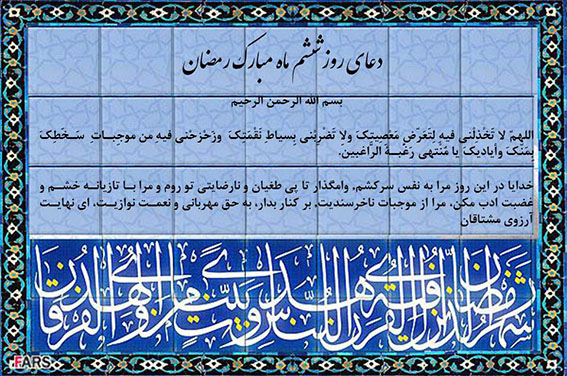 دعای روز ششم ماه مبارک رمضان
بسم الله الرحمن الرحیم
اللهمّ لا تَخْذلْنی فیهِ لِتَعَرّضِ مَعْصِیتِکَ ولا تَضْرِبْنی بِسیاطِ نَقْمَتِکَ وزَحْزحْنی فیهِ من موجِباتِ سَخَطِکَ
بِمَنّکَ وأیادیکَ یا مُنْتهى رَغْبةَ الرّاغبین.
خدایا در این روز مرا به نفس سرکشم، وامگذار تا پی طغیان و نارضایتی تو روم و مرا با تازیانه خشم و
غضبت ادب مکن، مرا از موجبات ناخرسندیت، بر کنار بدار، به حق مهربانی و نعمت نوازیت، ای نهایت
آرزوی مشتاقان
شهر رمضان الذی انزل فیه القرآن هدی للناس و بینت من الهدی و الفرقان
FARS